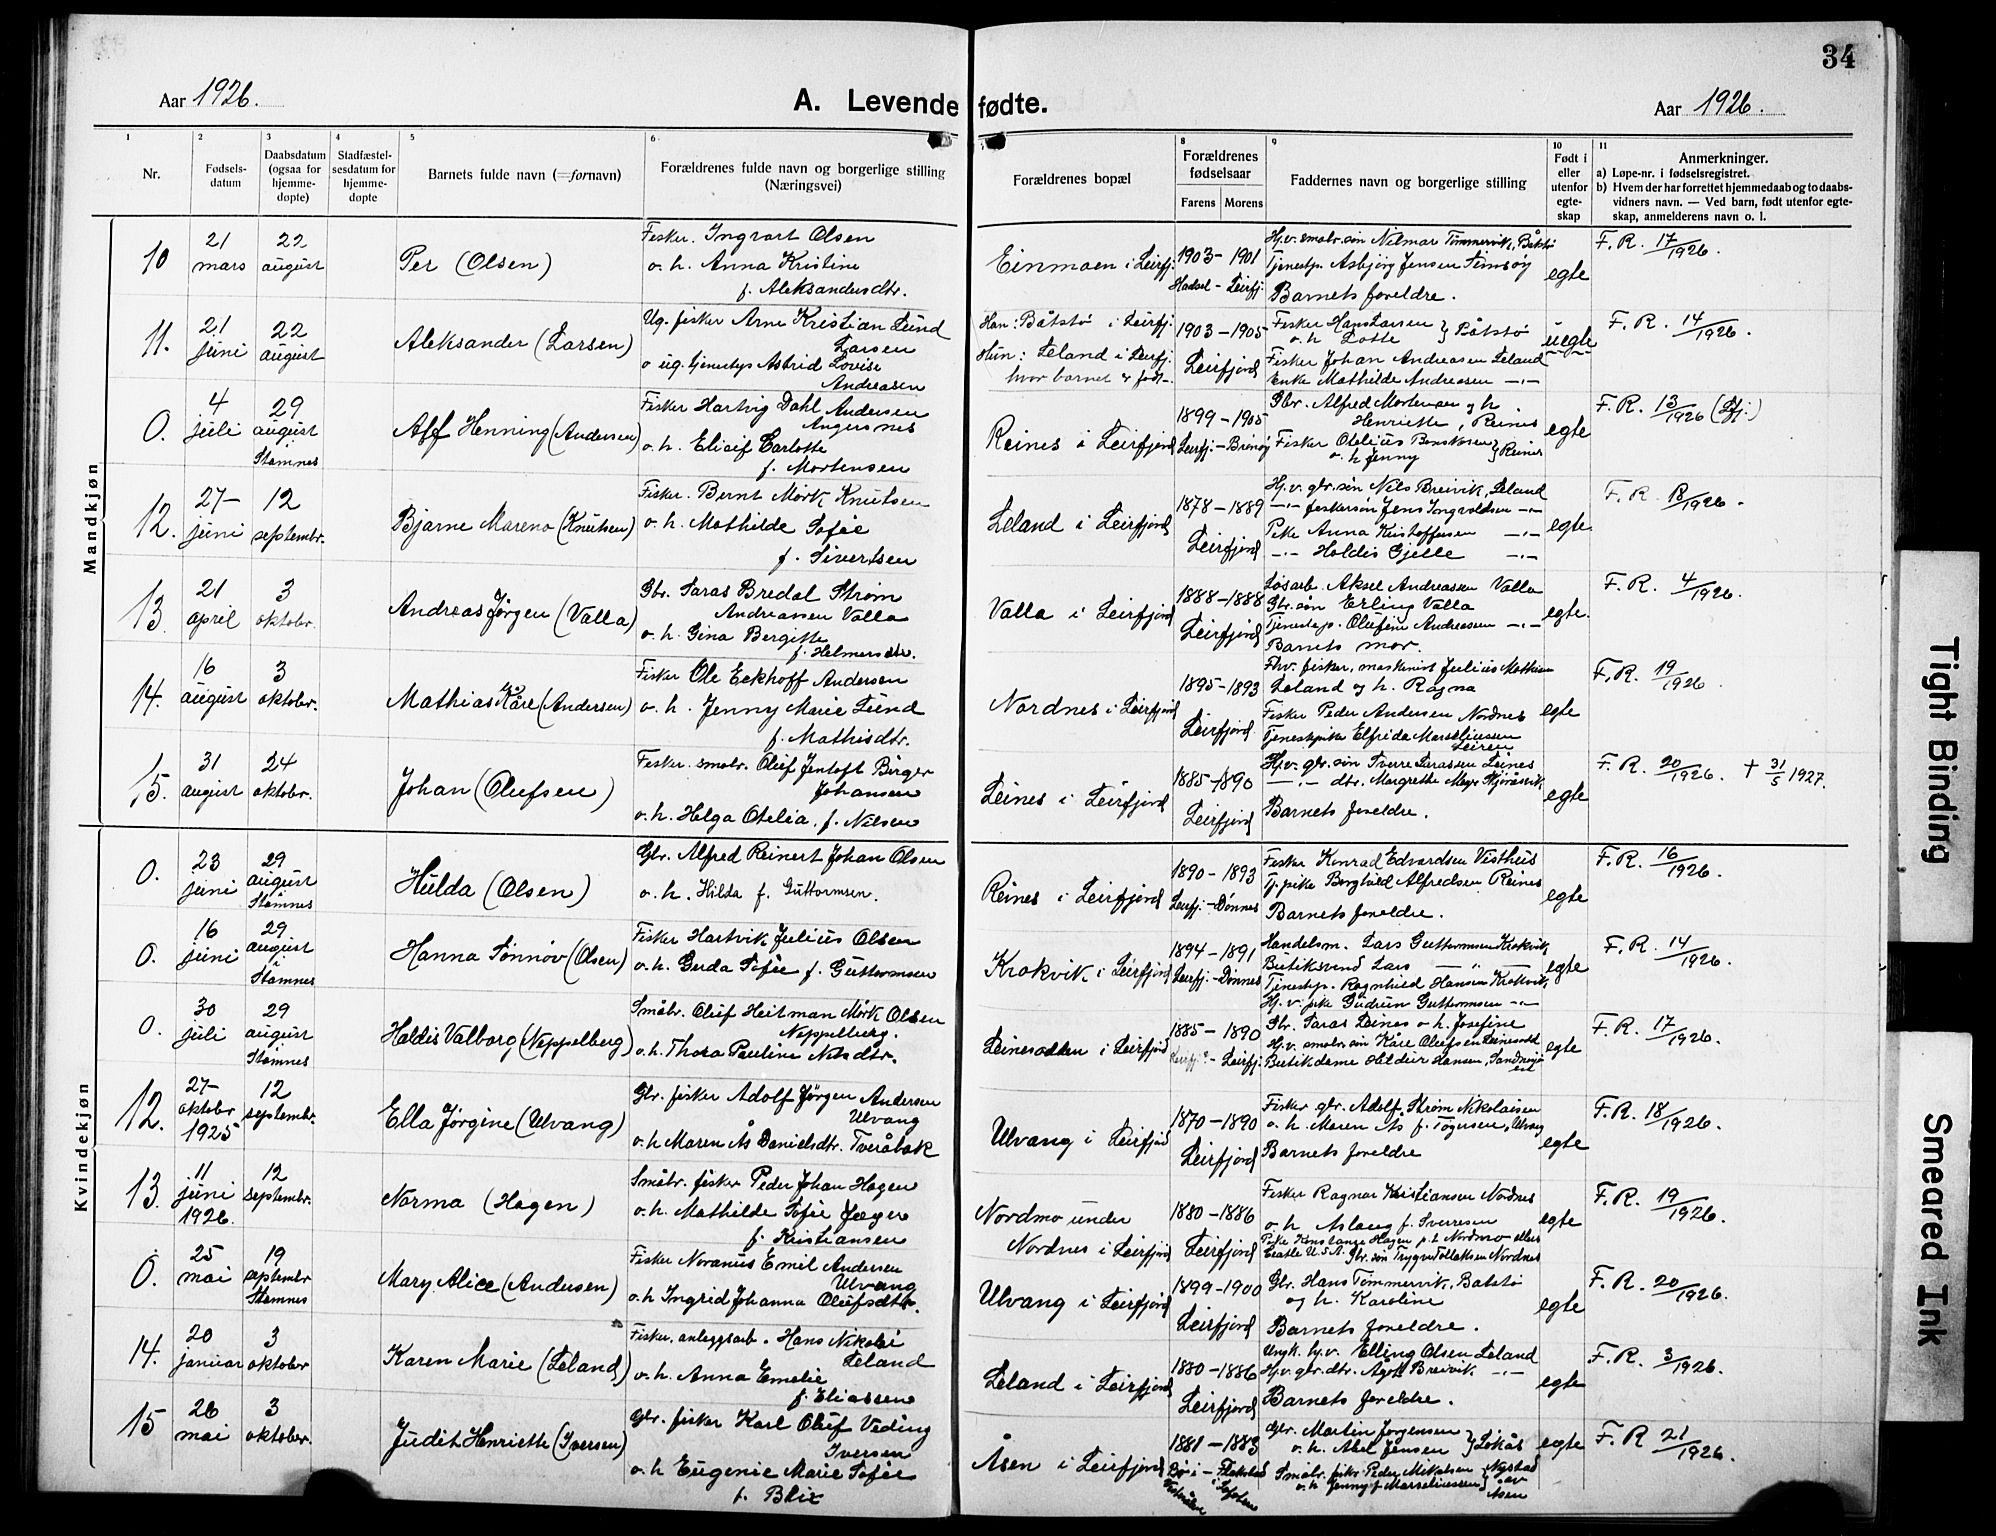 34
Aar 1926.
A. Levende fødte.
Aar 1926.
1
2
3
4
5
6
7
8
9
10
11
Nr.
Fødsels-
datum
Daabsdatum
(ogsaa for
hjemme-
døpte)
Stadfæstel-
sesdatum for
hjemme-
døpte
Barnets fulde navn (=fornavn)
Forældrenes fulde navn og borgerlige stilling
(Næringsvei)
Forældrenes bopæl
Forældrenes
fødselsaar
Farens
Morens
Faddernes navn og borgerlige stilling
Født i
eller
utenfor
egte-
skap
Anmerkninger.
a) Løpe-nr. i fødselsregistret.
b) Hvem der har forrettet hjemmedaab og to daabs-
vidners navn. — Ved barn, født utenfor egte-
skap, anmelderens navn o. l.
Mandkjøn
10
21
mars
22
august
Per (Olsen)
Fisker. Ingvart Olsen
o. h. Anna Kristine
f. Aleksandersdtr.
Einmoen i Leirfj.
1903 - 1901
Hadsel - Leirfj.
Tjenestp. Asbjørg Jensen
Barnets foreldre.
egte
F. R. 17/1926.
11.
21
juni
22
august
Aleksander (Larsen)
Ug. fisker Arne Kristian Lund
Larsen
o ug. tjenestp Astrid Lovise
Andreasen
Han: Båtstø i Leirfj.
Hun: Leland i Leirfj.
hvor barnet er født
1903 - 1905
Leirfjord
Fisker Hans Larsen } Båtstø
o. h. Lotte
Fisker Johan Andreasen Leland
Enke Mathilde Andreasen -"-
uegte
F. R. 14/1926.
0.
4
juli
29
august
Stamnes
Alf Henning (Andersen)
Fisker Hartvig Dahl Andersen
Angersnes
o. h. Carlotte
f. Mortensen
Reines i Leirfjord
1899 - 1905
Leirfj. - Brønøy
Gbr. Alfred Mortensen og h.
Henriette, Reines
Fisker Otelius } Reines
o. h. Jenny
egte
F. R. 13/1926 (Lfj.)
12.
27-
juni
12
septembr.
Bjarne Mareno (Knutsen)
Fisker. Bernt Mørk Knutsen
o. h. Mathilde Sofie
f. Sivertsen
Leland i Leirfjord
1878 - 1889
Leirfjord
Hj.v. gbr. søn Nils Breivik, Leland
-"- fiskersøn Jens Ingvoldsen -"-
Pike Anna Kristoffersen -"-
-"- Haldis Gjelle -"-
egte.
F. R. 18/1926.
13.
21
april
3
oktober
Andreas Jørgen (Valla)
Gbr. Laras Bredal Strøm
Andreassen Valla
o. h. Gina Bergitte
f. Helmersdtr.
Valla i Leirfjord
1888 - 1888
Leirfjord
Løsarb. Aksel Andreassen Valla
Gbr. søn Erling Valla
Tjenestp. Olufine Andreasen -"-
Barnets mor.
egte.
F. R. 4/1926.
14.
16
august
3
oktober.
Mathias Kåre (Andersen)
Fisker Ole Eckhoff Andersen
o. h. Jenny Marie Lund
f. Mathisdtr.
Nordnes i Leirfjord
1895 - 1893
Leirfjord.
Fhv. fisker, maskinist Julius Mathisen
Leland og h. Ragna
Fisker Peder Andersen Nordnes
Tjenestepike Elfrida Marseliussen
Leiren
egte
F. R. 19/1926.
15.
31
august
24
oktober.
Johan (Olufsen)
Fisker. smabr. Oluf Jentoft Birger
Johansen
o. h. Helga Otelia, f. Nilsen
Leines i Leirfjord
1885 - 1890
Leirfjord
Hj.v. gbr. søn Sverre Larassen Leines
-"- dtr. Margrethe
Barnets foreldre.
egte
F. R. 20/1926. † 31/5 1927.
Kvindekjøn
0.
23
juni
29
august
i
Stamnes
Hulda (Olsen)
Gbr. Alfred Reinert Johan Olsen
o. h. Hilda f. Guttormsen.
Reines i Leirfjord
1890 - 1893
Leirfj. - Dønnes
Fisker Konrad Edvardsen Visthus
Tj. pike Borghild Alfredsen Reines
Barnets foreldre.
egte
F. R. 16/1926.
0.
16
juni
29
august
i
Stamnes
Hanna Sønnøv (Olsen)
Fisker Hartvik Julius Olsen
o. h. Gerda Sofie f. Guttormsen
Krokvik i Leirfjord
1894 - 1891
Leirfj. - Dønnes
Handelsm. Lars Guttormsen Krokvik
Butiksvend Lars -"-
Tjenestp. Ragnhild Hansen Krokvik
Hj. v. pike Gudrun Guttormsen -"-
egte
F. R. 14/1926.
0.
30
juli
29
august
Stamnes
Haldis Valborg (Neppelberg)
Småbr. Oluf Heitman Mørk Olsen
Neppelberg.
o. h. Thora Pauline Nilsdtr.
Leinesodden i Leirfjord
1885 - 1890
Leirfj. - Leirfj.
Gbr. Laras Leines o. h. Josefine
Hj. v. smabr. søn Kåre Olufsen Leinesodd
Butikdame Hildur Hansen,
egte
F. R. 17/1926.
12.
27-
oktober
1925
12
septembr.
Ella Jørgine (Ulvang)
Gbr. fisker Adolf Jørgen Andersen
Ulvang
o. h. Maren Ås Danielsdtr. Tveråbak
Ulvang i Leirfjord
1870 - 1890
Leirfjord
Fisker gbr. Adolf Strøm Nikolaisen
o. h. Maren Ås f. Tøgersen, Ulvang
Barnets foreldre
egte
F. R. 18/1926.
13.
11
juni
1926.
12
septembr.
Norma (Hagen)
Småbr. fisker Peder Johan Hagen
o. h. Mathilde Sofie Jæger
f. Kristiansen
Nordmo under
Nordnes i Leirfjord
1880 - 1886
Leirfjord
Fisker Ragnar Kristiansen Nordnes
o. h. Aslaug f. Sverresen
Pike Konstanse Hagen p.t. Nordmo ellers
Seatle U.S.A. Gbr. søn Trygve Tollaksen Nordnes
egte
F. R. 19/1926.
0.
25
mai
19
septembr
Stamnes
Mary Alice (Andersen)
Fisker Novanus Emil Andersen
Ulvang
o. h Ingrid Johanna Olufsdtr.
Ulvang i Leirfjord
1899 - 1900
Leirfjord
Gbr. Hans Tømmervik, Båtstø
og h. Karoline
Barnets foreldre.
egte
F. R. 20/1926.
14.
20
januar
3
oktober
Karen Marie (Leland)
Fisker, anleggsarb. Hans Nikolai
Leland
o. h. Anna Emelie
f. Eliassen
Leland i Leirfjord
1880 - 1886
Leirfjord
Ungk. hj.v. Elling Olsen Leland
Hj.v. gbr. dtr. Agot Breivik -"-
Barnets foreldre.
egte
F. R. 3/1926.
15
26
mai
3
oktober.
Judit Henriette (Iversen)
Gbr. fisker Karl Oluf Veding
Iversen
o. h Eugenie Marie Sofie
f. Blix
Åsen i Leirfjord
1881 - 1883
Bø i - Flakstad
Vesterålen
i Lofoten
Gbr. Martin Jørgensen } Løkås
o. h. Abel Jensen
Småbr. fiskr Peder Mikalsen } Nystad
o. h. Jenny f Marseliussen av
Åsen
egte
F. R 21/1926.
Tight Binding
Smeared Ink